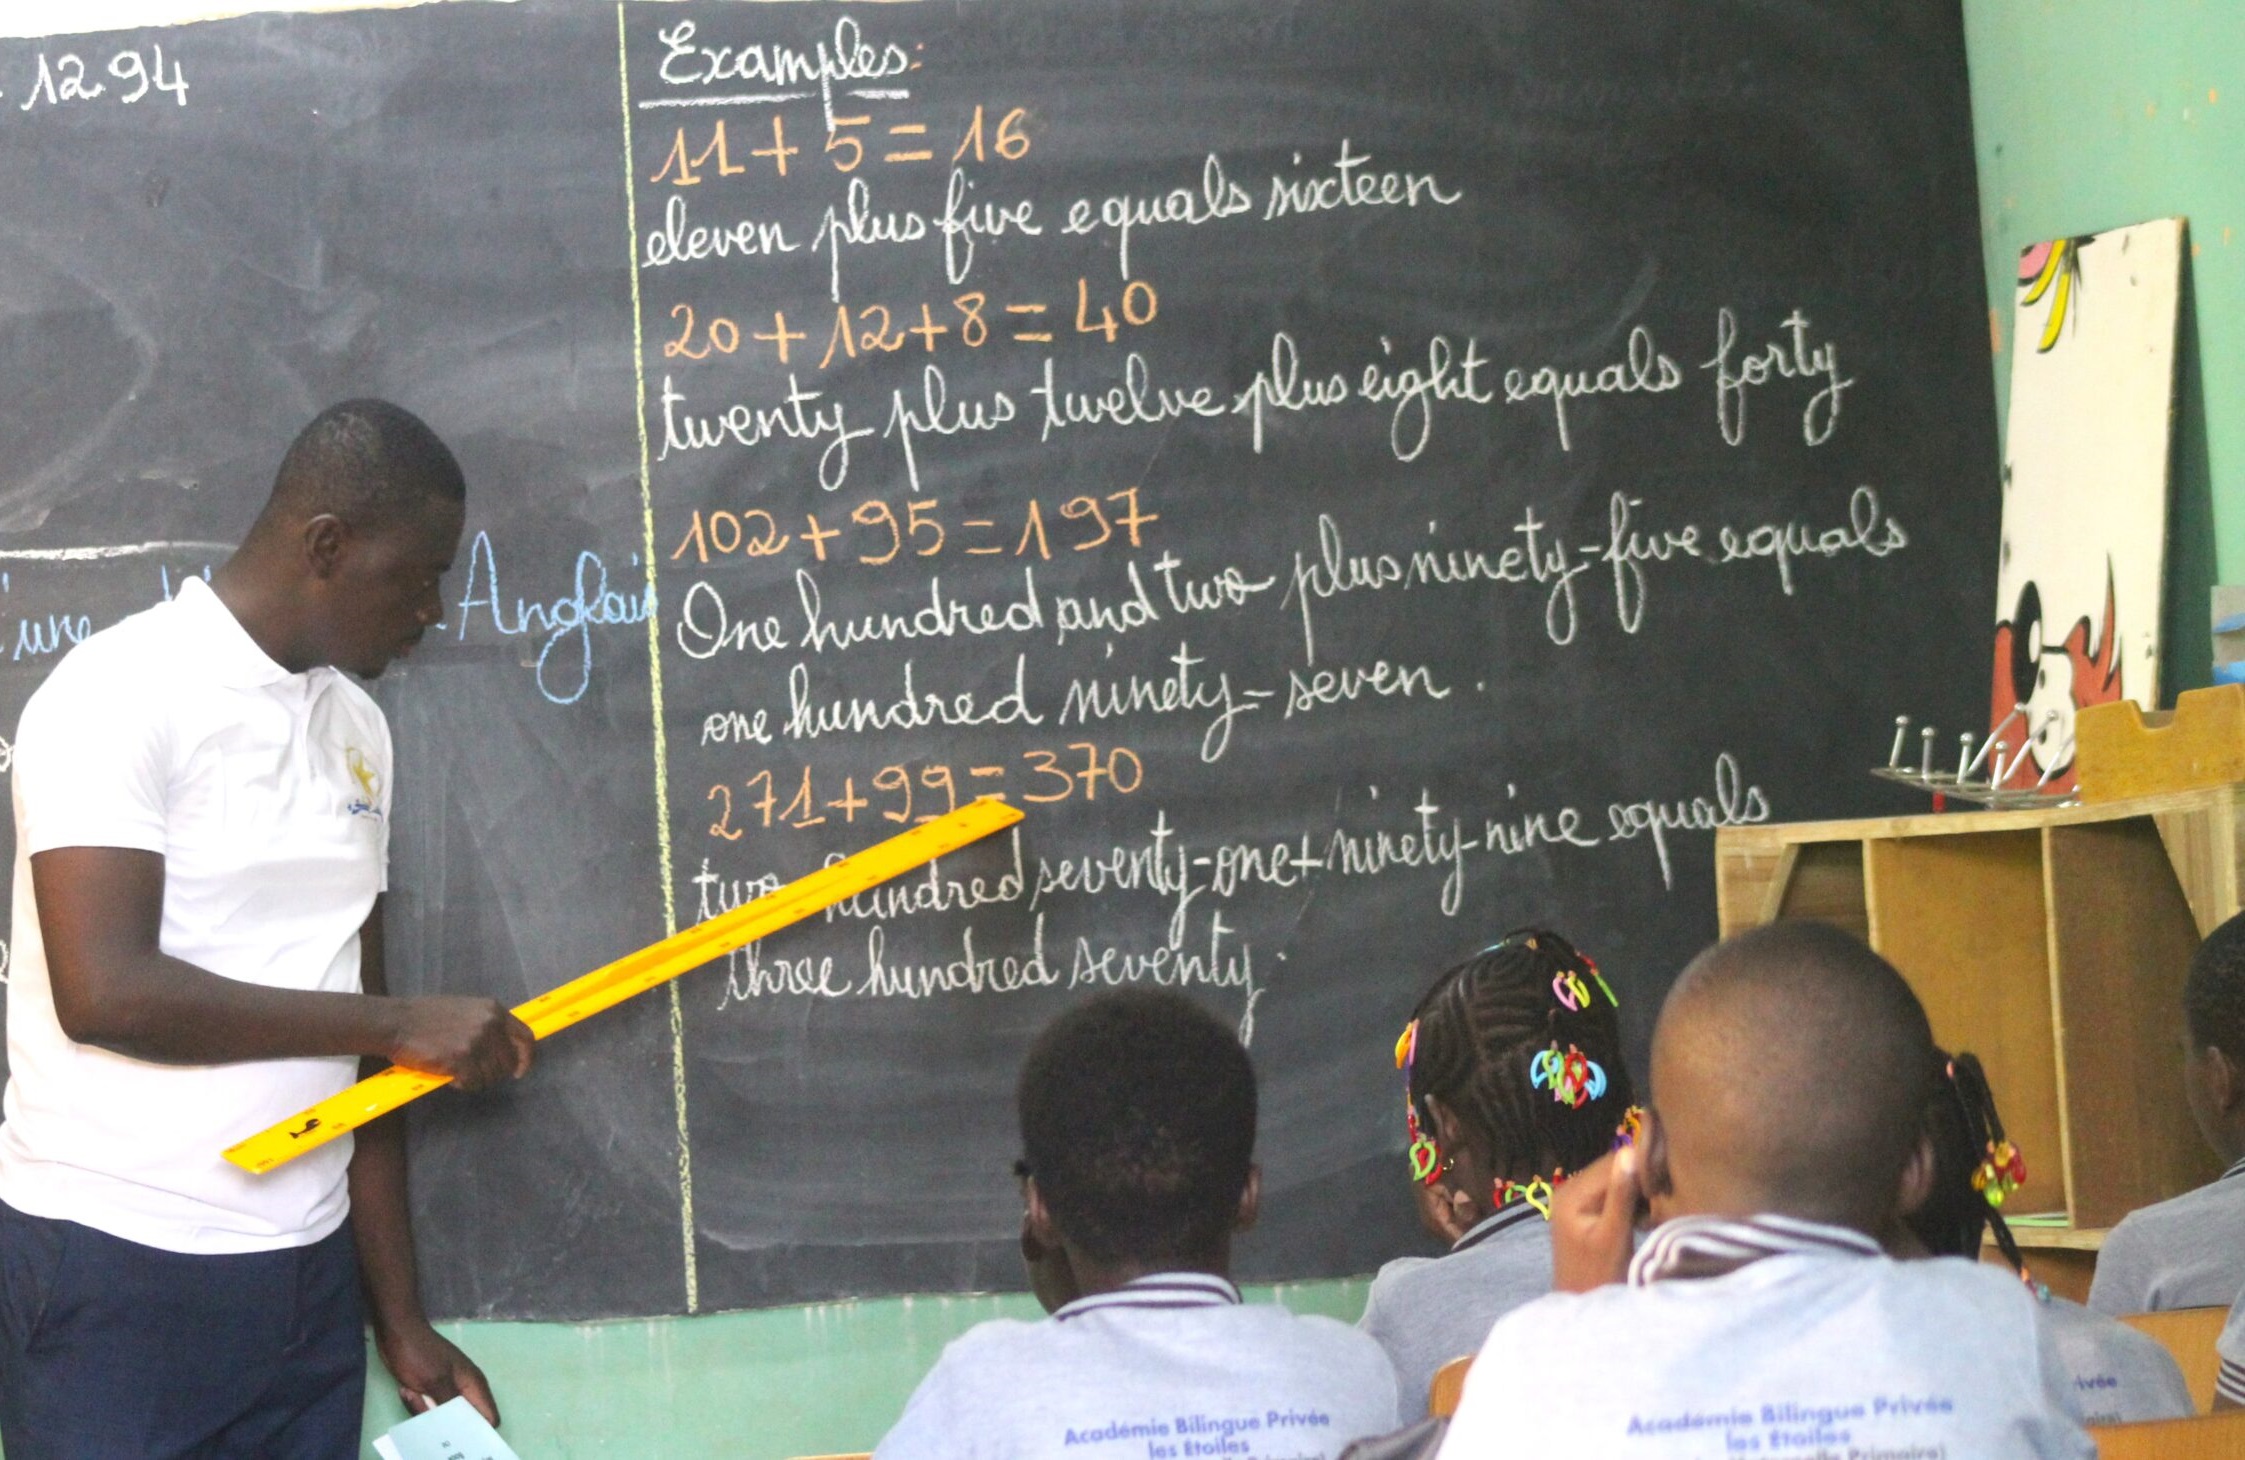 1294
Examples:
11 + 5 = 16
eleven plus five equals sixteen
20 + 12 + 8 = 40
twenty plus twelve plus eight equals forty
102 + 95 = 197
One hundred and two plus ninety-five equals
one hundred ninety-seven.
271 + 99 = 370
two hundred seventy-one + ninety-nine equals
three hundred seventy.
une
Anglais
Académie Bilingue Privée
les Étoiles
Académie Bilingue Privée
les Étoiles
Primaire)